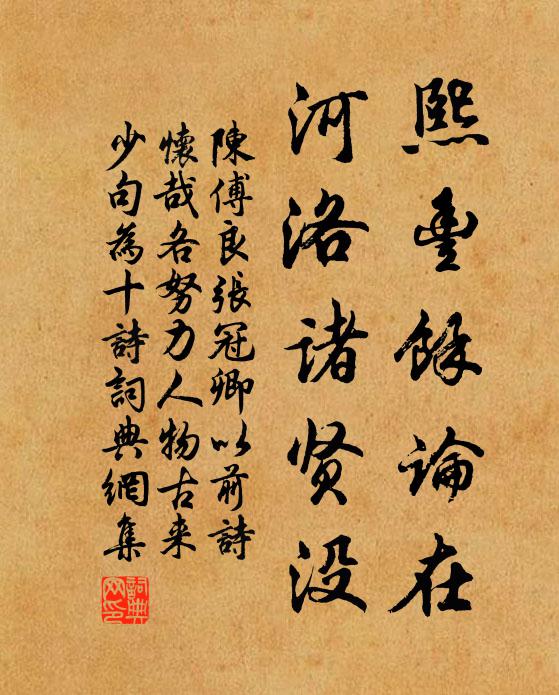 熙豐餘論在
河洛諸贤没
陳傅良張冠卿以前詩
懷哉各努力人物古来
少句為十詩詞典網集